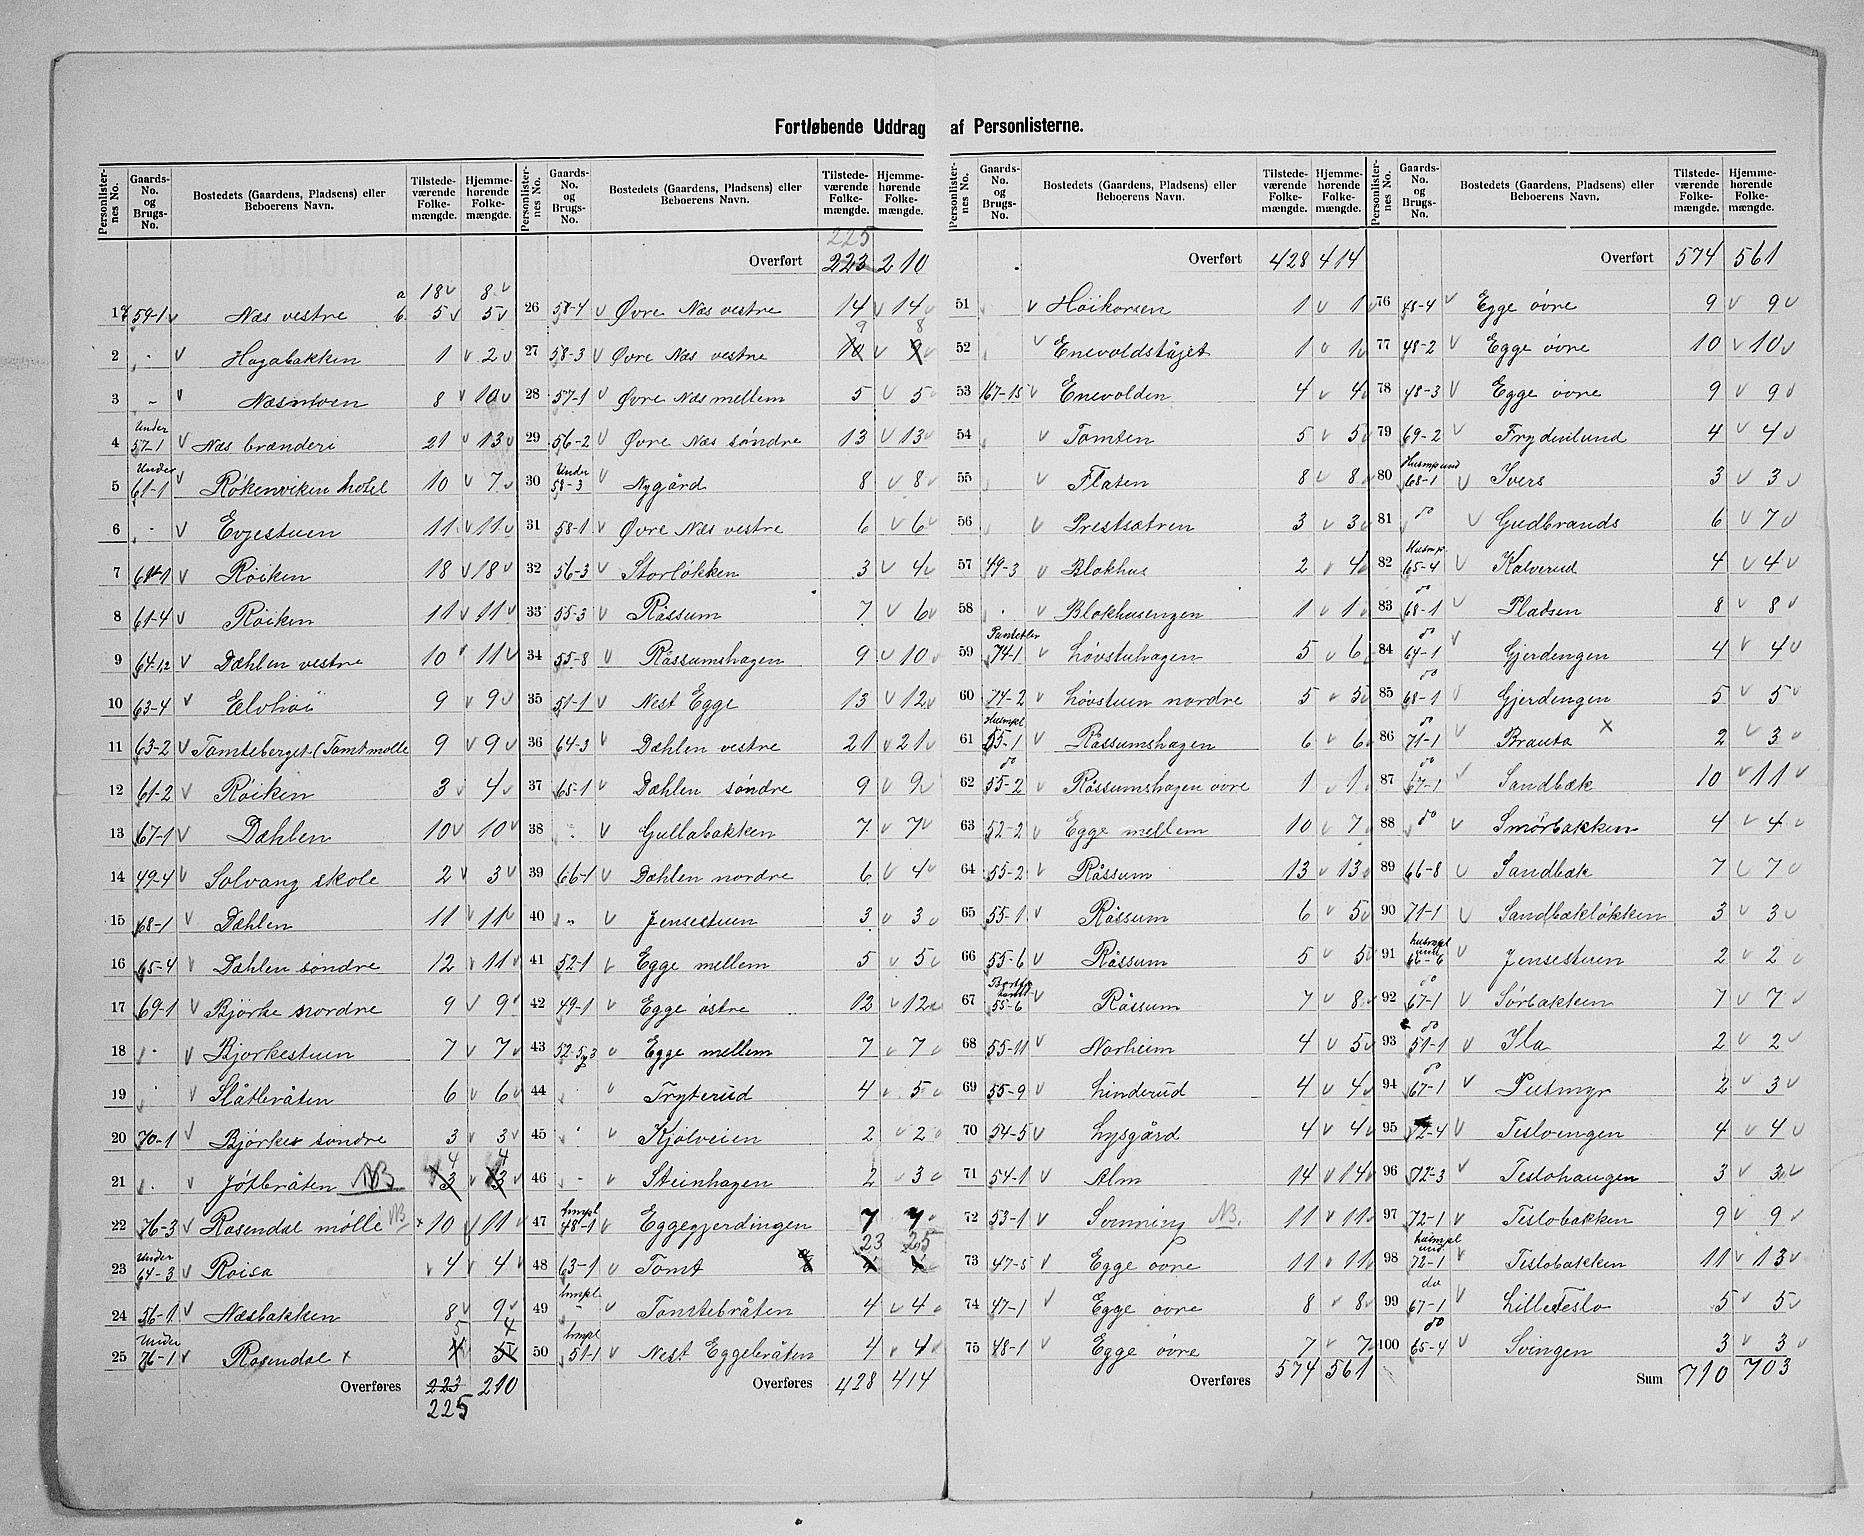 Fortløbende Uddrag af Personlisterne.
Personlisternes No. Gaards-No. og Brugs-No. Bostedets (Gaardens, Pladsens) eller Beboerens Navn. Tilstedeværende Folkemængde. Hjemmehørende Folkemængde.
a 18 8
1 59-1 Næs vestre b. 5 5
2 - Hagabakken 1 2
3 - Næsmoen 8 10
4 Under 57-1 Næs brænderi 21 13
5 Under 61-1 Røkenviken hotel 10 7
6 - Evjestuen 11 11
7 61-1 Røiken 18 18
8 61-4 Røiken 11 11
9 64-12 Dæhlen vestre 10 11
10 63-4 Elvhøi 9 9
11 63-2 Tomteberget (Tomtmølle 9 9
12 61-2 Røiken 3 4
13 67-1 Dæhlen 10 10
14 49-4 Solvang skole 2 3
15 68-1 Dæhlen 11 11
16 65-4 Dæhlen søndre 12 11
17 69-1 Bjørke nordre 9 9
18 - Bjørkestuen 7 7
19 - Slåtbråten 6 6
20 70-1 Bjørke søndre 3 3
21 - Jøtbråten NB 3 4 3 4
22 76-3 Rosendal mølle NB × 10 11
23 Under 64-3 Røisa 4 4
24 56-1 Næsbakken 8 9
25 Under 76-1 Rosendal × 4 5 5 4
Overføres 223 210
225
Personlisternes No. Gaards-No. og Brugs-No. Bostedets (Gaardens, Pladsens) eller Beboerens Navn. Tilstedeværende Folkemængde. Hjemmehørende Folkemængde.
225
Overført 223 210
26 58-4 Øvre Næs vestre 14 14
27 58-3 Øvre Næs vestre 10 9 9 8
28 57-1 Øvre Næs mellem 5 5
29 56-2 Øvre Næs søndre 13 13
30 Under 58-3 Nygård 8 8
31 58-1 Øvre Næs vestre 6 6
32 56-3 Storløkken 3 4
33 55-3 Råssum 7 6
34 55-8 Råssumshagen 9 10
35 51-1 Nest Egge 13 12
36 64-3 Dæhlen vestre 21 21
37 65-1 Dæhlen søndre 9 9
38 - Gullabakken 7 7
39 66-1 Dæhlen nordre 6 4
40 - Jensestuen 3 3
41 52-1 Egge mellem 5 5
42 49-1 Egge østre 12 12
43 52-5 Egge mellem 7 7
44 Tryterud 4 5
45 - Kjølveien 2 2
46 - Steinhagen 2 3
47 hmpl 48-1 Eggegjerdingen 7 7
23 25
48 63-1 Tomt
49 hmpl - Tomtebråten 4 4
50 hmpl 51-1 Nest Eggebråten 4 4
Overføres 428 414
Personlisternes No. Gaards-No. og Brugs-No. Bostedets (Gaardens, Pladsens) eller Beboerens Navn. Tilstedeværende Folkemængde. Hjemmehørende Folkemængde.
Overført 428 414
51 Høikorsen 1 1
52 Enevoldståjet 1 1
53 167-15 Enevolden 4 4
54 Tomten 5 5
55 Flaten 8 8
56 Prestsætren 3 3
57 49-3 Blokhus 2 4
58 - Blokhusengen 1 1
59 74-1 Løvstuhagen 5 6
60 74-2 Løvstuen nordre 5 5
61 Husmpl 55-1 Råssumshagen 6 6
62 do 55-2 Råssumshagen øvre 1 1
63 52-2 Egge mellem 10 7
64 55-2 Råssum 13 13
65 55-1 Råssum 6 5
66 55-6 Råssum 5 5
67 55-6 Råssum 7 8
68 55-11 Norheim 4 5
69 55-9 Linderud 4 4
70 54-5 Lysgård 4 4
71 54-1 Alm 14 14
72 53-1 Svenning NB. 11 11
73 47-5 Egge øvre 11 11
74 47-1 Egge øvre 8 8
75 48-1 Egge øvre 7 7
Overføres 574 561
Personlisternes No. Gaards-No. og Brugs-No. Bostedets (Gaardens, Pladsens) eller Beboerens Navn. Tilstedeværende Folkemængde. Hjemmehørende Folkemængde.
Overført 574 561
76 48-4 Egge øvre 9 9
77 48-2 Egge øvre 10 10
78 48-3 Egge øvre 9 9
79 69-2 Frydenlund 4 4
80 Husmp und 68-1 Ivers 3 3
81 do Gudbrands 6 7
82 Husmp. 65-4 Kalverud 4 4
83 do 68-1 Pladsen 8 8
84 do 64-1 Gjerdengen 4 4
85 do 68-1 Gjerdengen 5 5
86 do 71-1 Brauta × 2 3
87 do 67-1 Sandbæk 10 11
88 do Smørbakken 4 4
89 66-8 Sandbæk 7 7
90 71-1 Sandbækløkken 3 3
91 husmpl und 66-6 Jensestuen 2 2
92 do 67-1 Sørbakken 7 7
93 do 51-1 Ila 2 2
94 do 67-1 Putmyr 2 3
95 72-4 Tesloengen 4 4
96 72-3 Teslohaugen 3 3
97 72-1 Teslobakken 9 9
98 husmpl und. 72-1 Teslobakken 11 13
99 do 67-1 Lille Teslo 5 5
100 do 65-4 Svingen 3 3
Sum 710 703